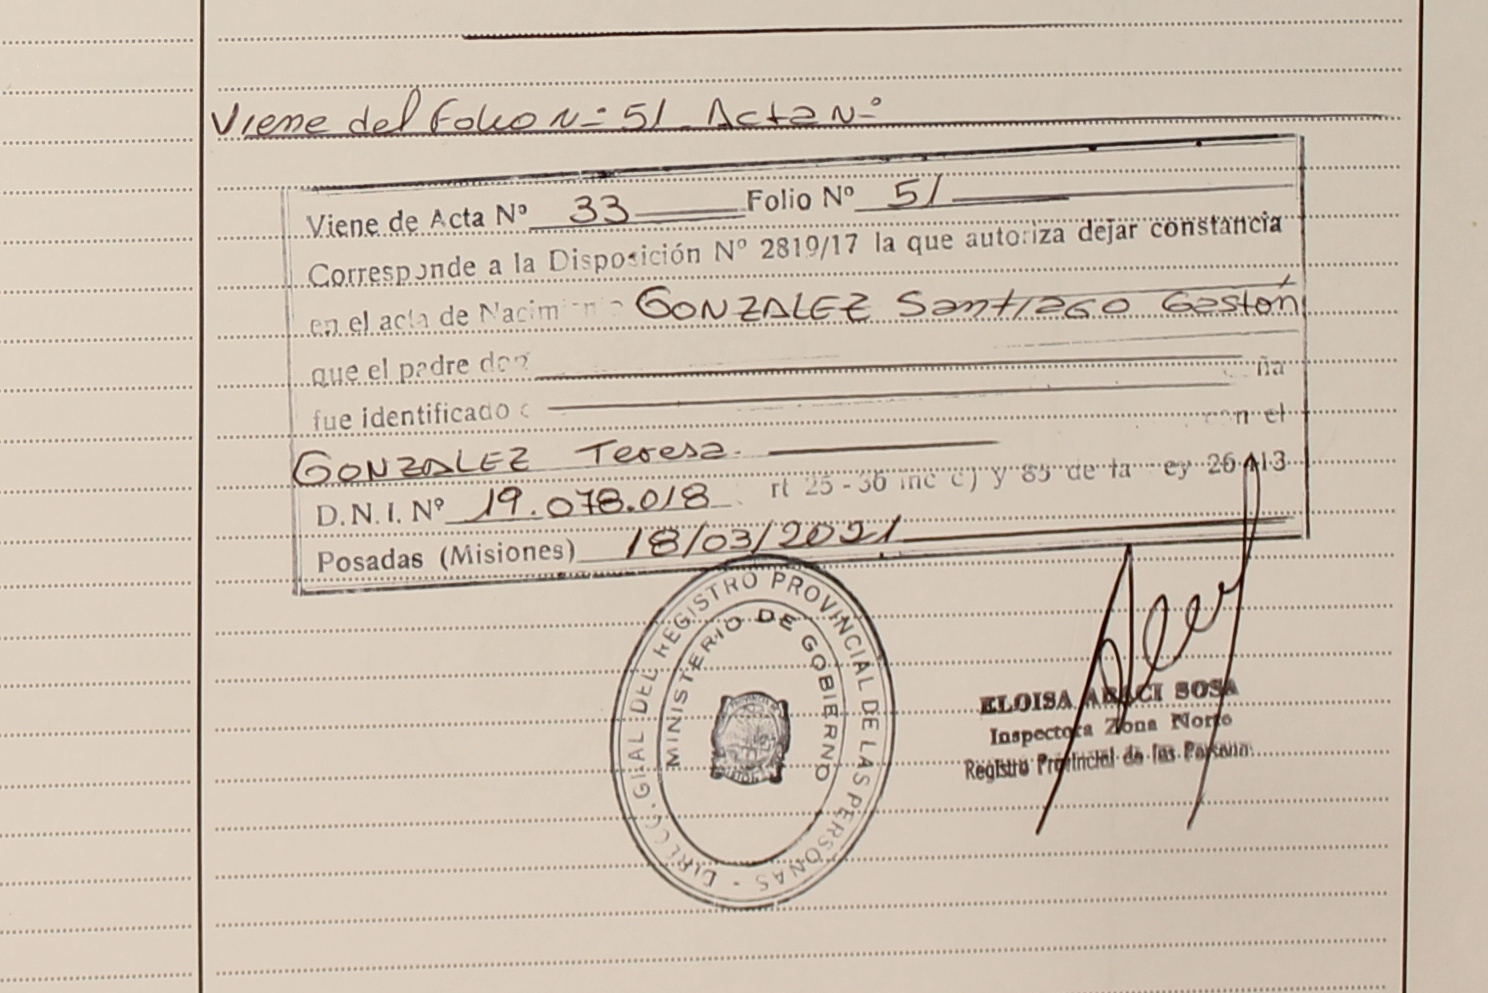 Viene del Folio Nº 51 Acta Nº
Viene de Acta Nº 33 Folio Nº 51
Corresponde a la Disposición Nº 2819/17 la que autoriza dejar constancia
en el acta de Nacim GONZALEZ Santiago Gastón
que el padre
fue identificado
ña
con el
GONZALEZ Teresa
D.N.I. Nº 19.078.018 rt 25 - 36 inc c) y 85 de la ey 26 413
Posadas (Misiones) 18/03/2021
DIRECC. GRAL DEL REGISTRO PROVINCIAL DE LAS PERSONAS -
MINISTERIO DE GOBIERNO
ELOISA ARACI SOSA
Inspectora Zona Norte
Registro Provincial de las Personas